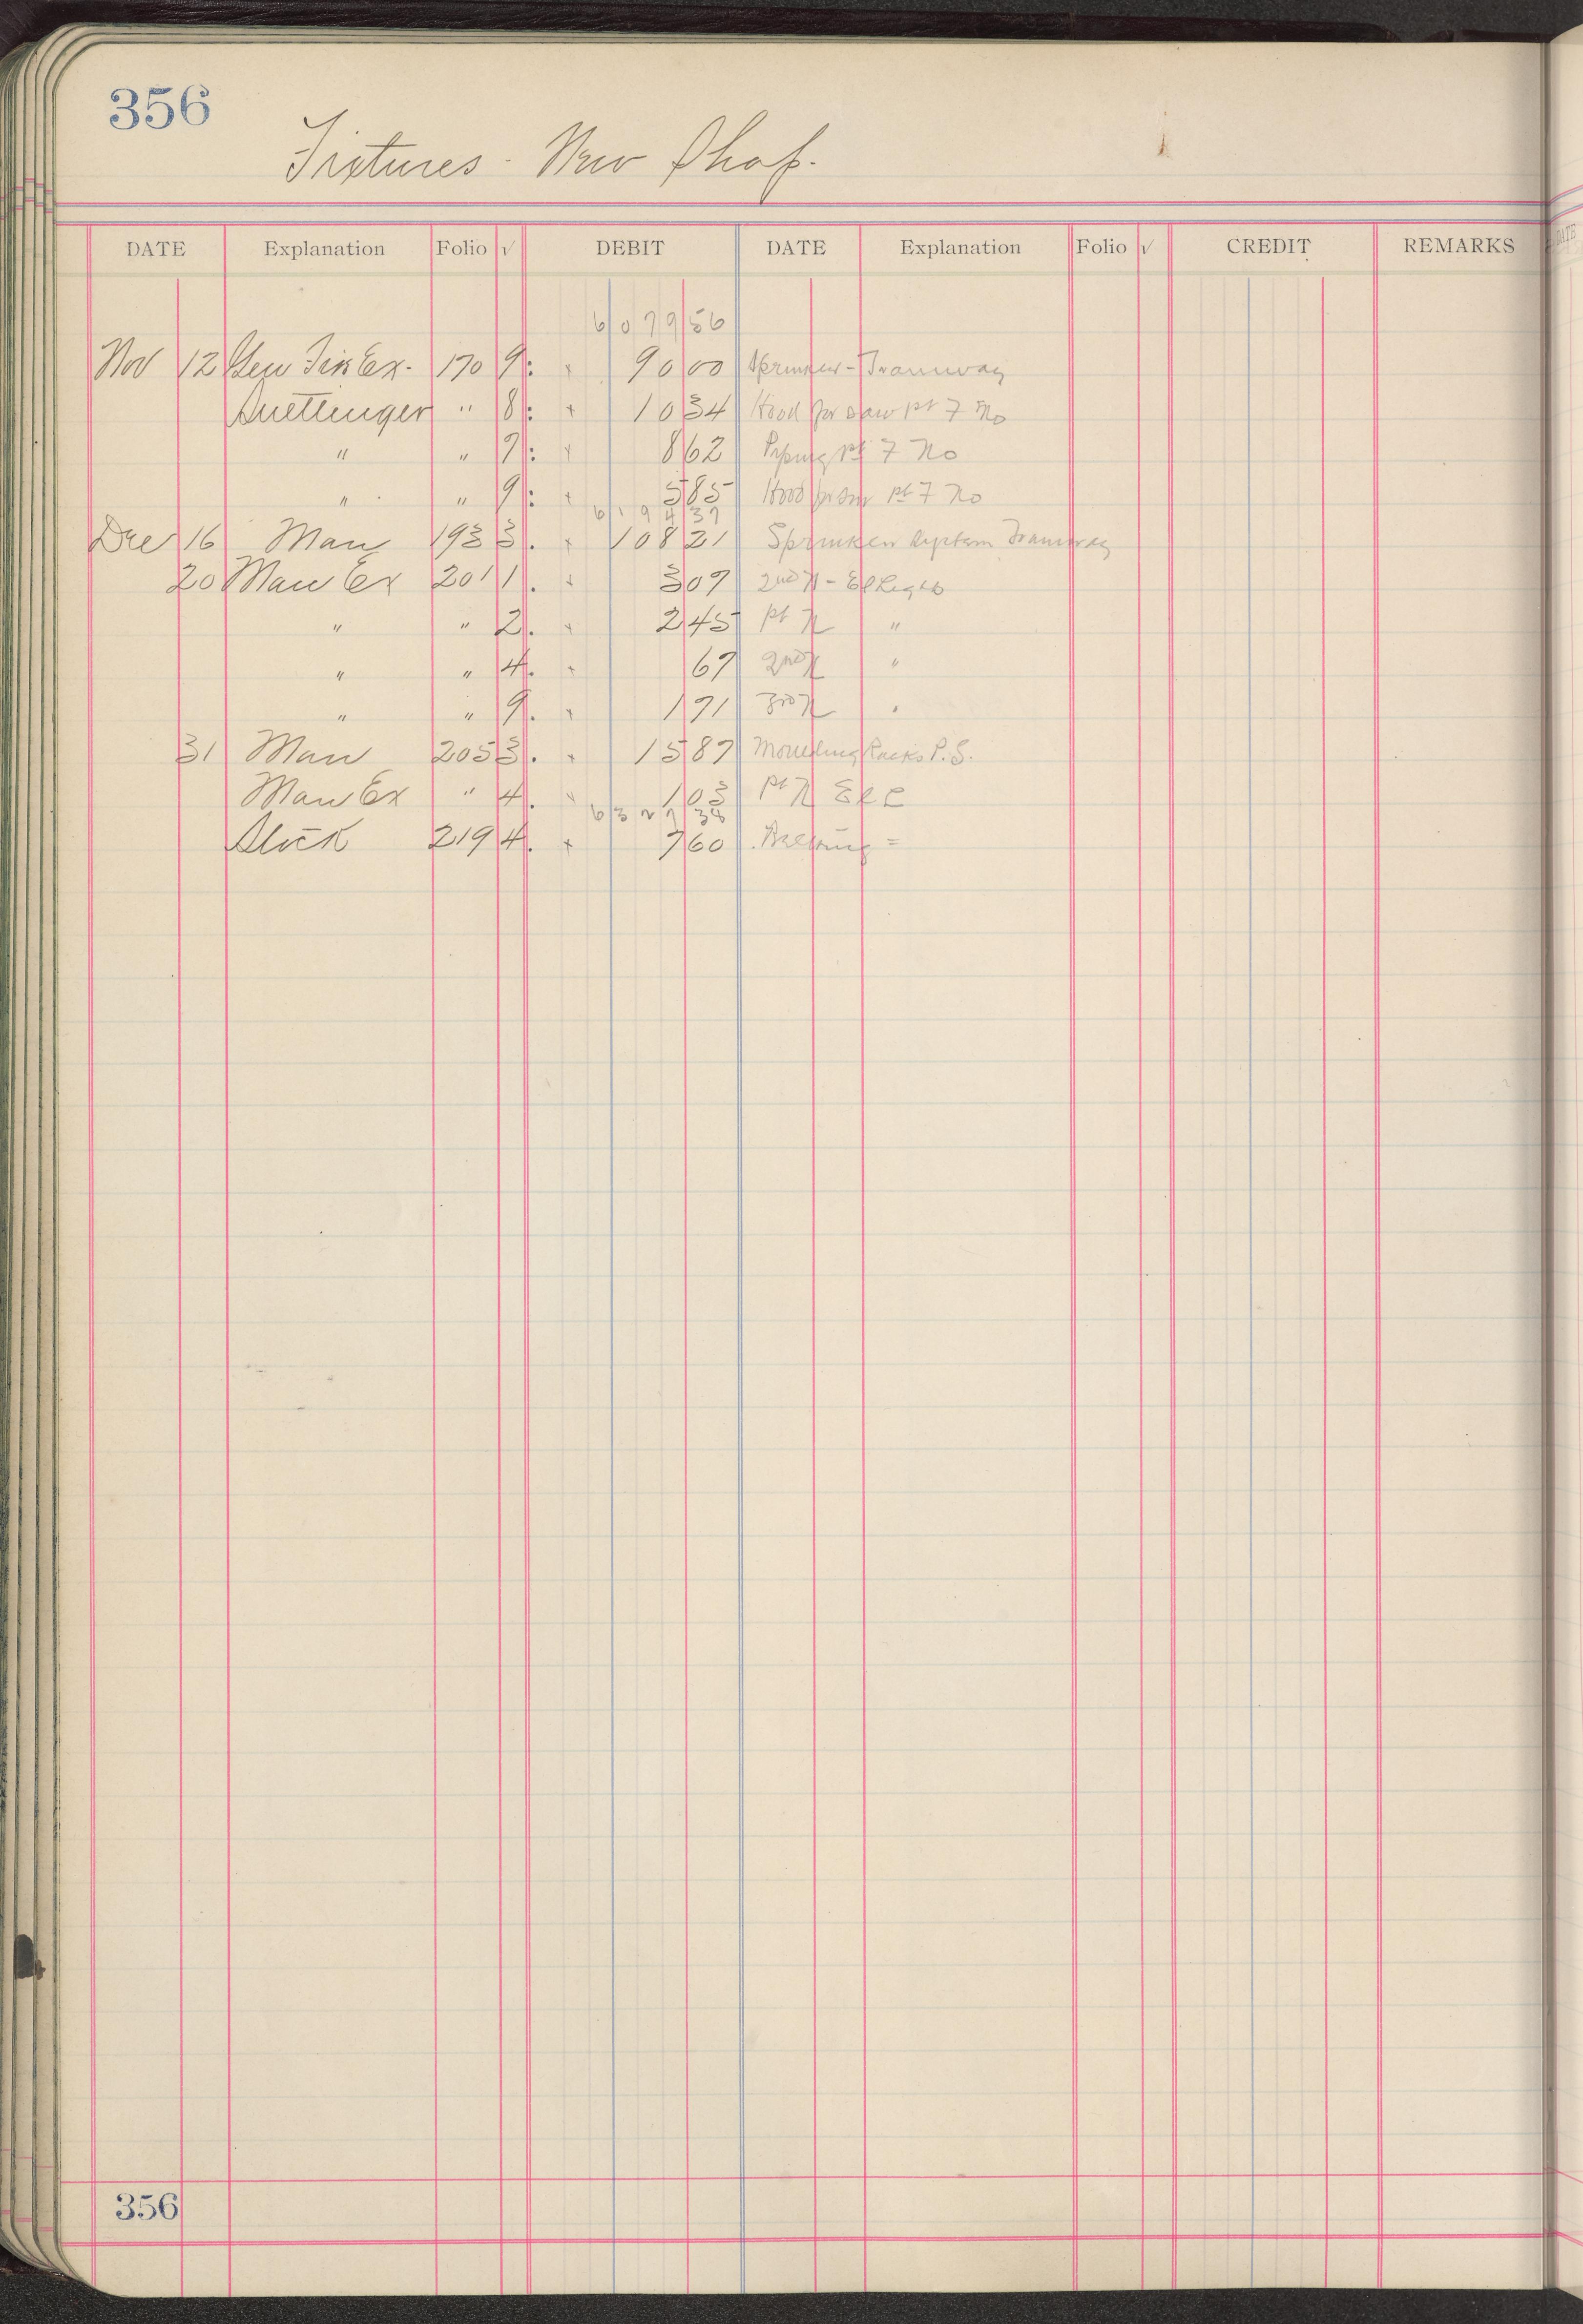 356
Fixtures - New Shop.
DATE Explanation Folio √ DEBIT DATE Explanation Folio √ CREDIT REMARKS
6 079 56
Nov 12 Gen Fix Ex. 170 9 90 00 Sprinkler - Tramway
" 8 10 34 Hood for saw pt 7 No
" " 9 8 62 Piping pt 7 No
" " 9 5 85 Hood for saw pt 7 No
6 194 37
Dec 16 Man 193 3 108 21 Sprinkler System Tramway
20 Man Ex 201 1 3 07 2nd N - El Lights
" " 2 2 45 pt N "
" " 4 67 2nd N "
" " 9 1 71 3rd N "
31 Man 205 3 15 87 Moulding Racks P.S.
Man Ex " 4 1 03 pt N
6 327 38
Stock 219 4 7 60 Belting =
356